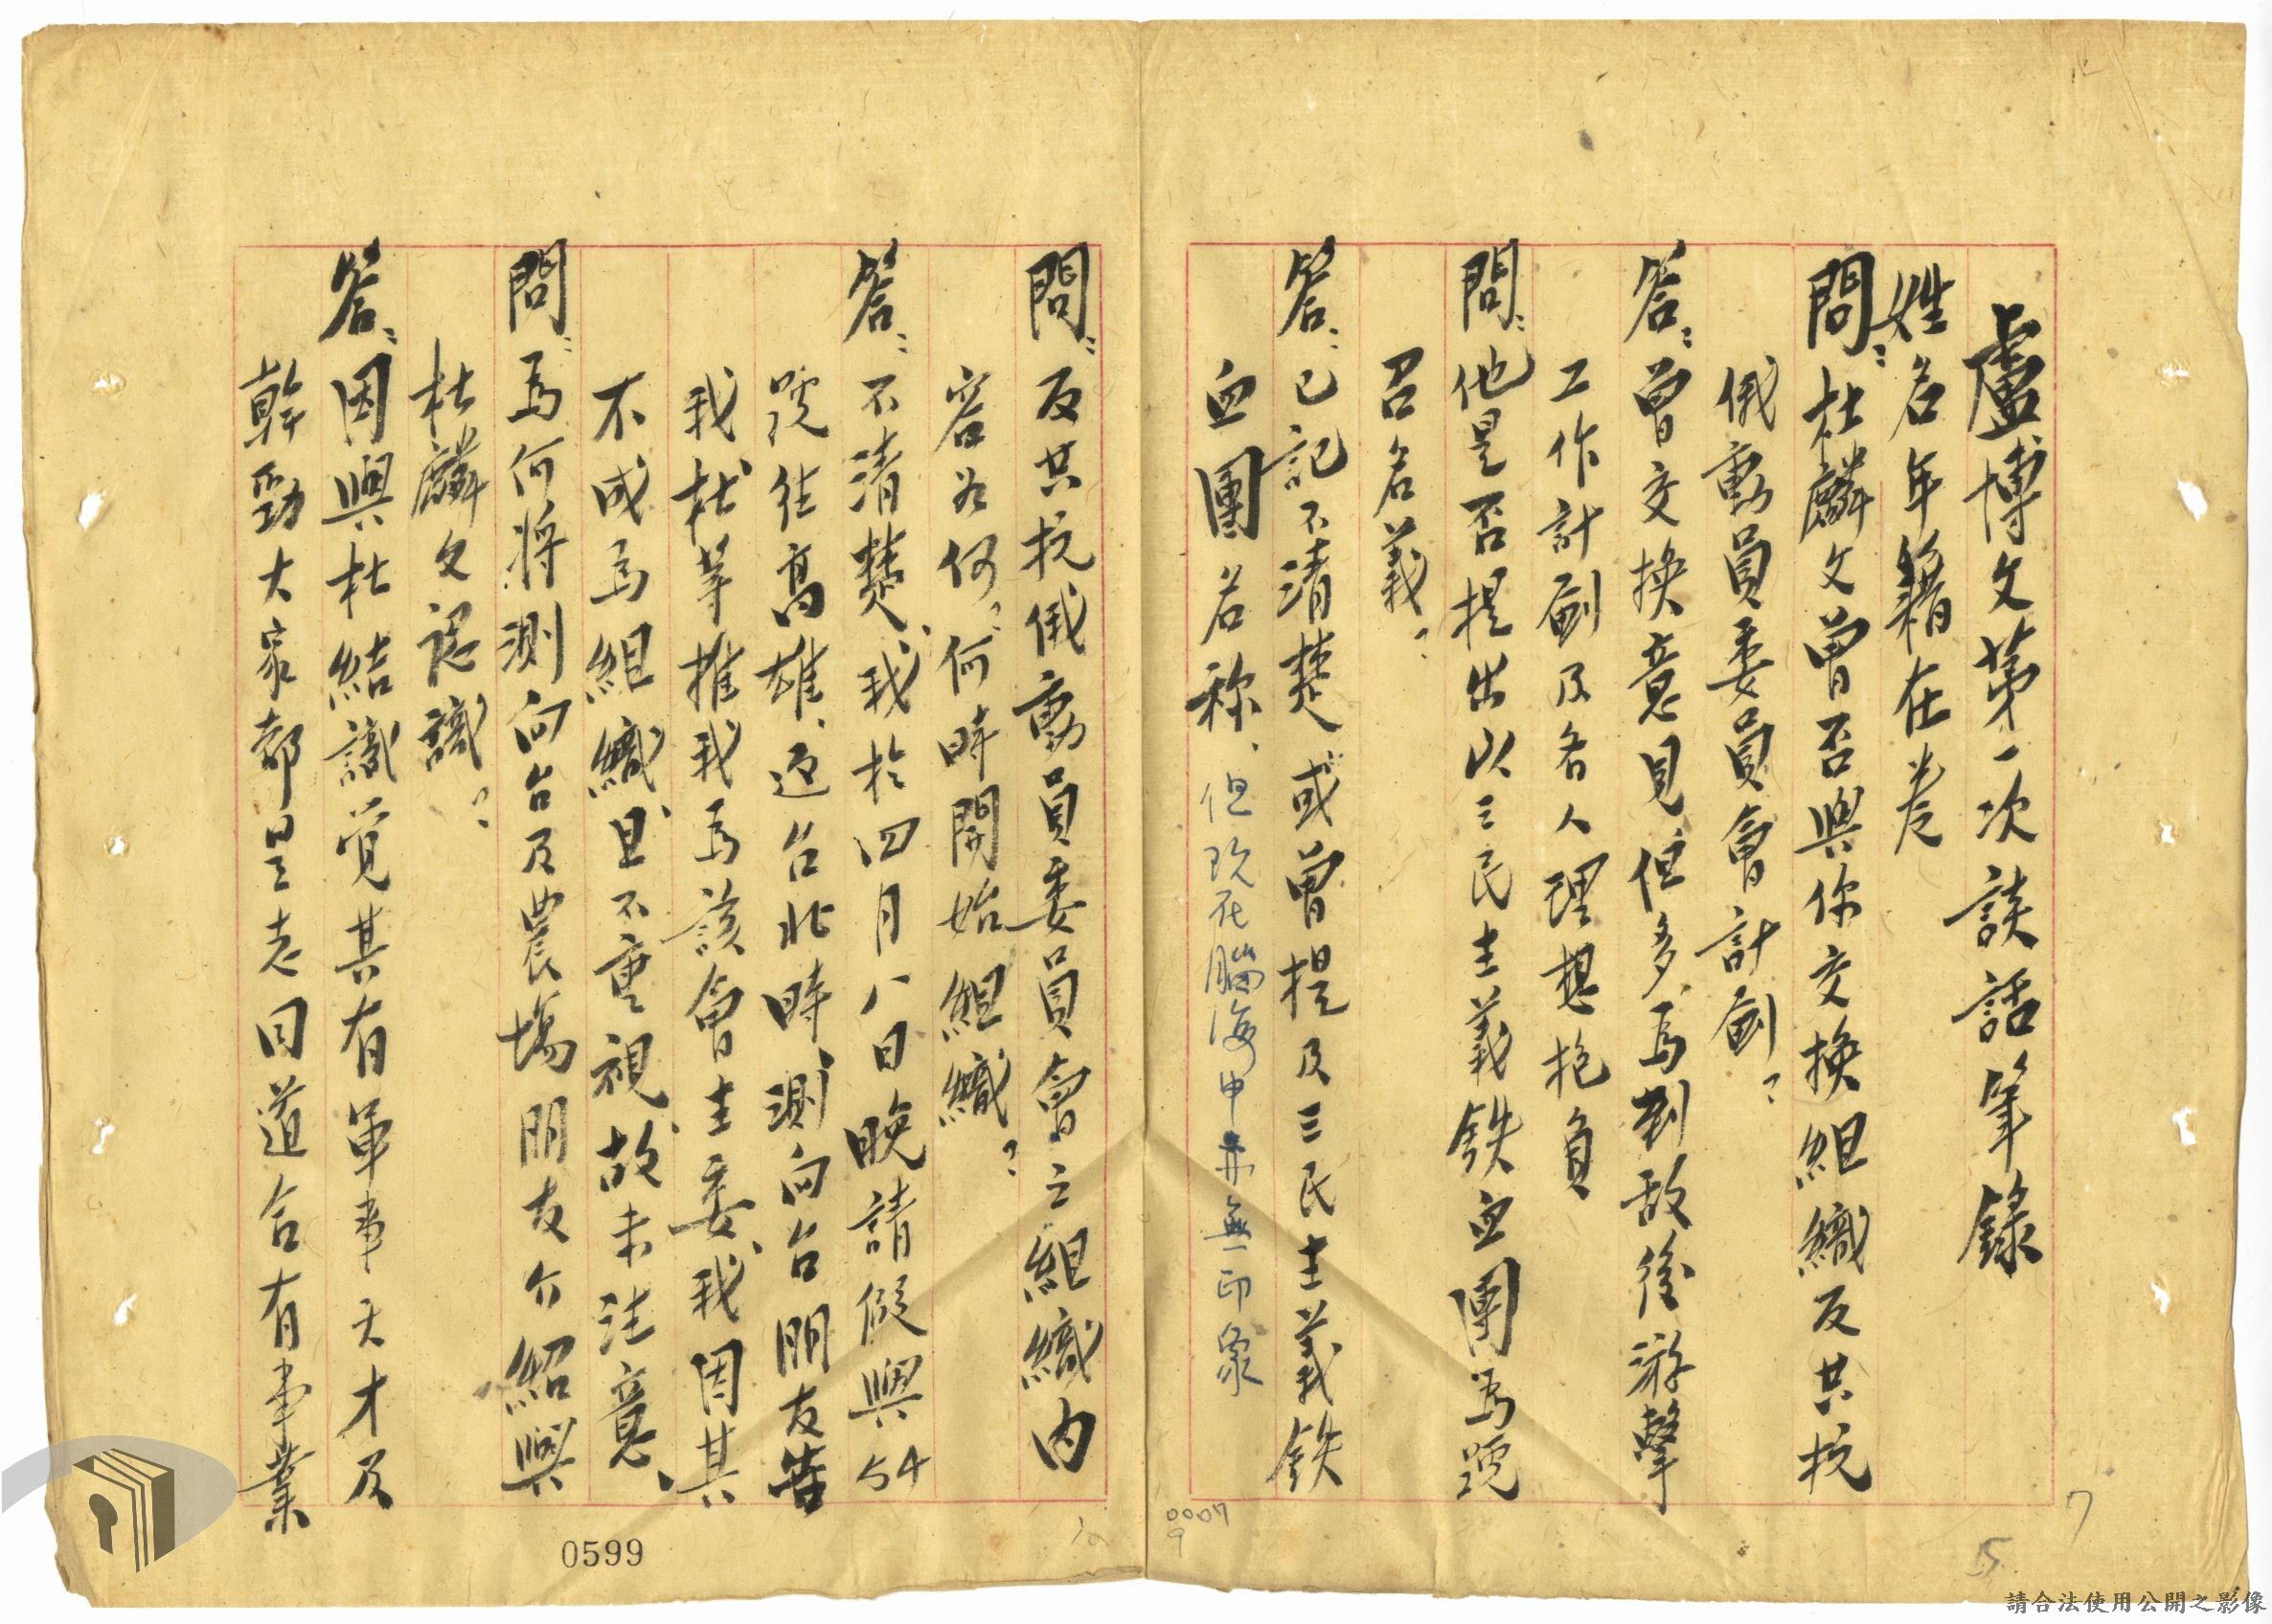 盧博文第一次談話筆錄
姓名年籍在卷
問：杜麟文曾否與你交換組織反共抗
俄動員委員會計劃？
答：曾交換意見但多為對敵後游擊
工作計劃及各人理想抱負
問：他是否提出以三民主義鉄血團為號
召名義？
答：已記不清楚或曾提及三民主義鉄
血團名称、但現在腦海中亦無印象
問：反共抗俄動員委員會之組織內
容為何？何時開始組織？
答：不清楚、我於四月八日晚請假與54
號往高雄、返台北時、測向台朋友告
我杜等推我為該會主委、我因其
不成為組織、且不重視、故未注意、
問：為何將測向台及農場朋友介紹與
杜麟文認識？
答：因與杜結識覚其有軍事天才及
幹勁大家都是志同道合有事業
0599
0007
9
5
7
請合法使用公開之影像